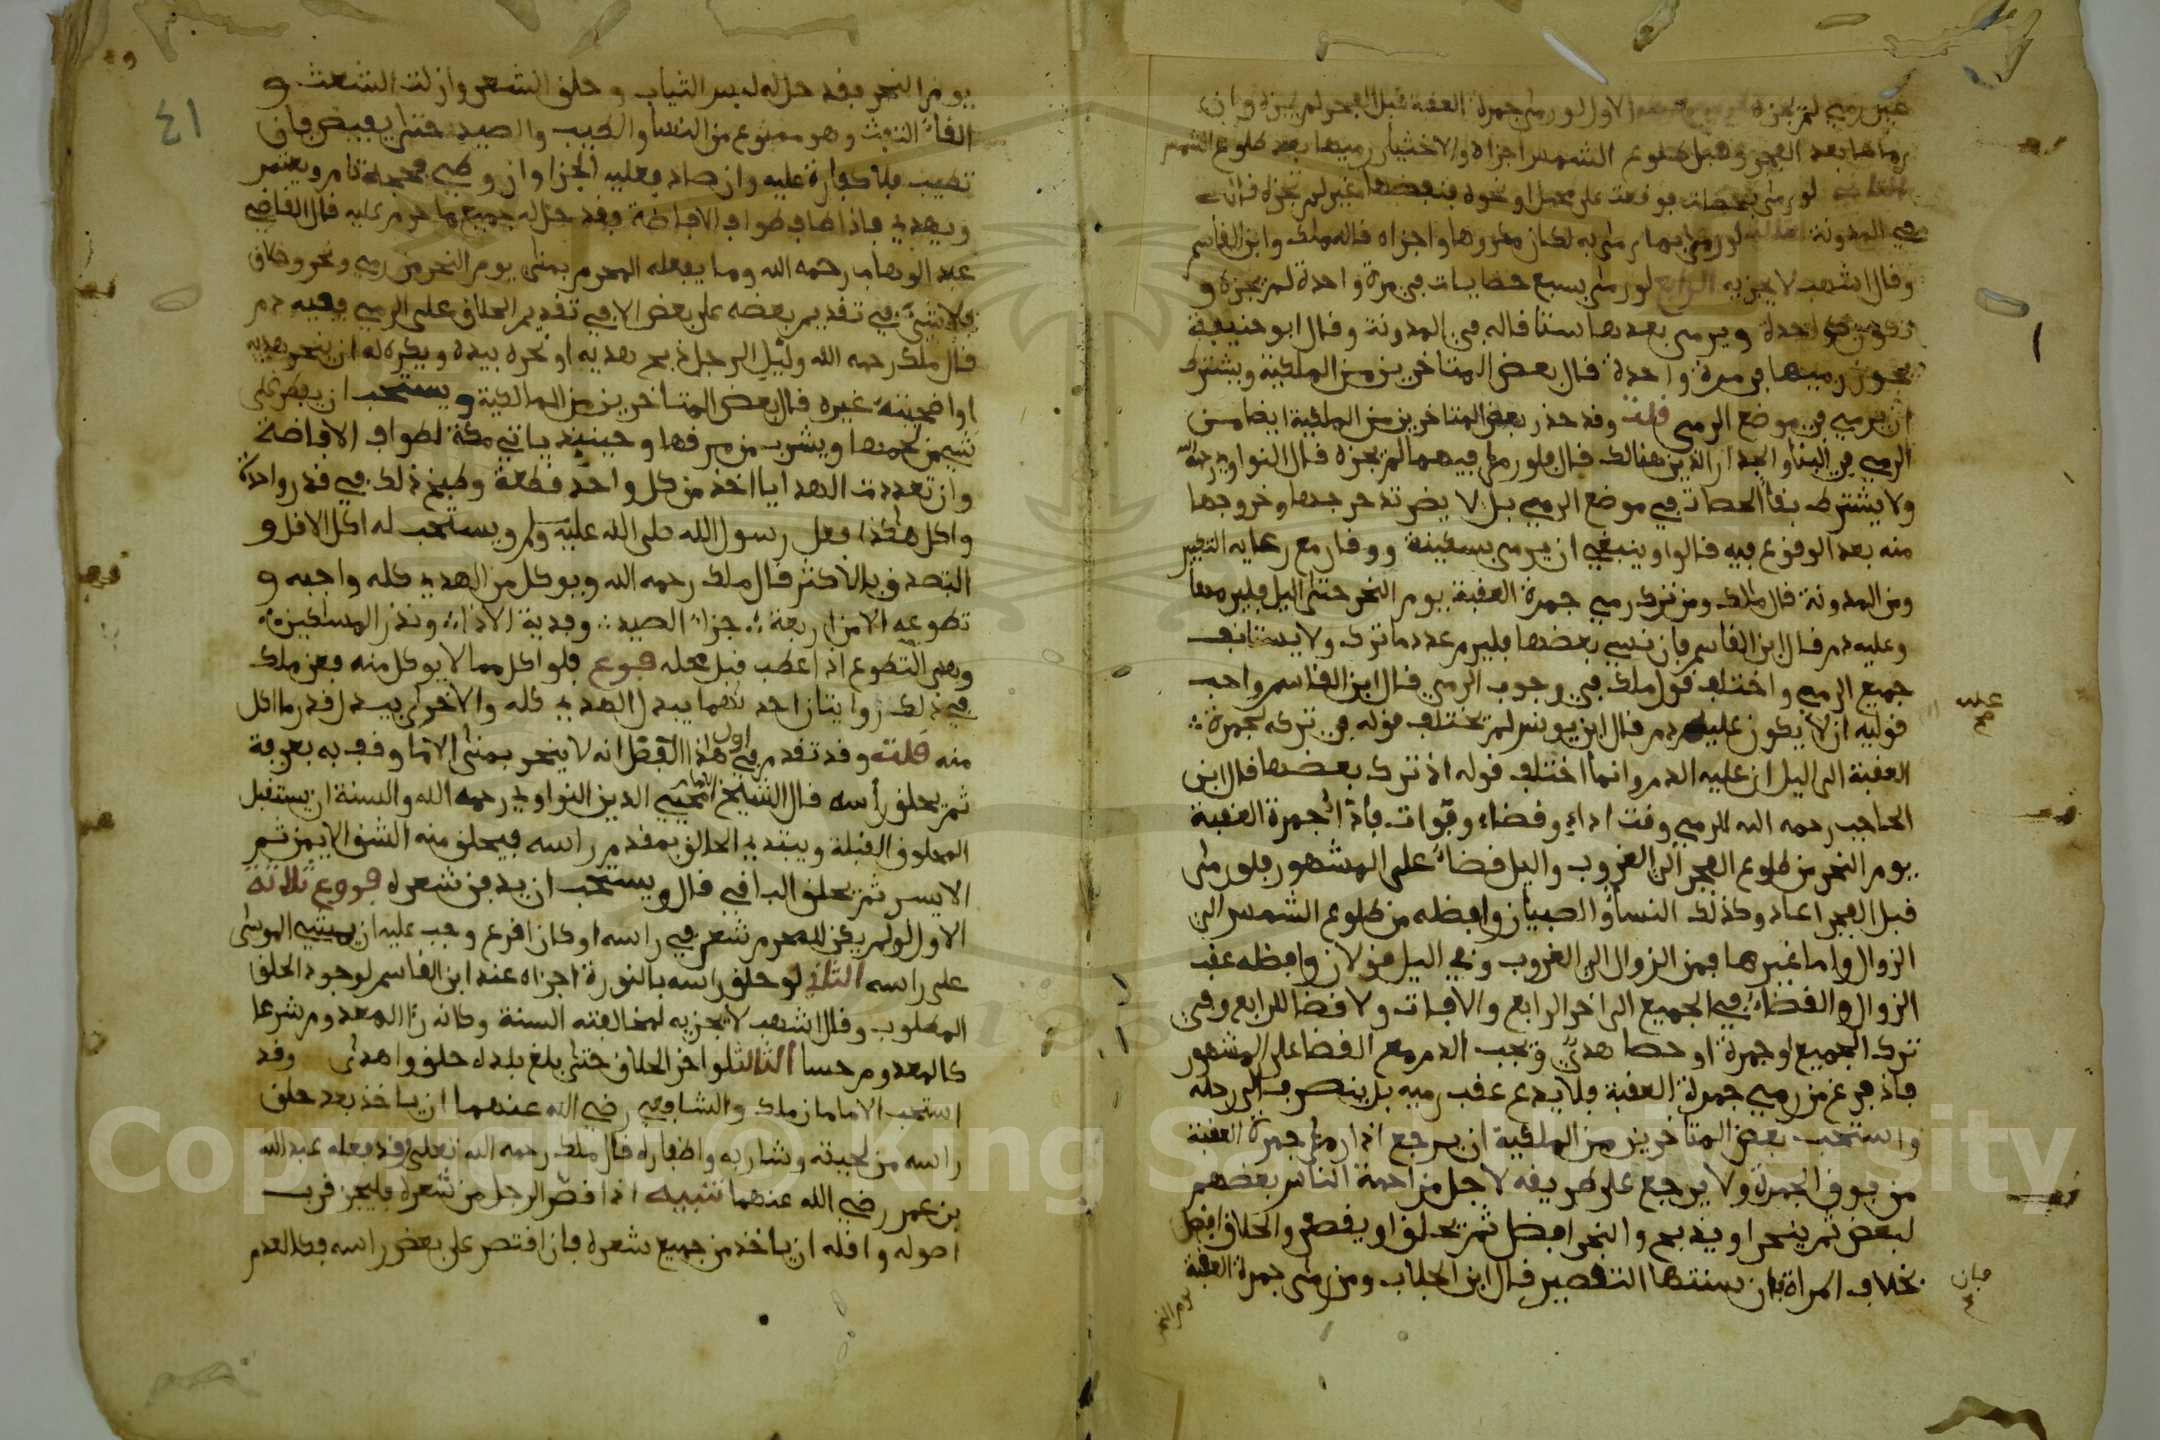 رماها بعد الفجر وقبل طلوع الشمس اجزاه والاختيار رميها بعد طلوع الشمس
لو رمى بحصات فوقعت على محمل او نحوه فنفضها غيره لم تجزه قاله
في المدونة لو رمى بما رمى به لكان مكروها واجزاه قاله ملك وابن القاسم
وقال اشهب لا يجزيه الرابع لو رمى بسبع حصايات في مرة واحدة لم تجزه و
واحدة ويرمي بعدها ستا قاله في المدونة وقال ابو حنيفة
يجوز رميها في مرة واحدة قال بعض المتاخرين من الملكية ويشترط
ان يرمي في موضع الرمي قلت وقد حذر بعض المتاخرين من الملكية ايضا من
الرمي في البنا والجدار الذين هنالك قال فلو رمى فيهما لم تجزه قال النواوي رحمه الله
ولا يشترط بقا الحصات في موضع الرمي بل لا يضر تدحرجها وخروجها
منه بعد الوقوع فيه قالوا وينبغي ان يرمي بسكينة ووقار مع رعايه التكبير
ومن المدونة قال ملك ومن ترك رمي جمرة العقبة يوم النحر حتى اليل فليرمها
وعليه دم قال ابن القاسم فان نسي بعضها فليرم عدد ما ترك ولا يستانف
جميع الرمي واختلف قول ملك في وجوب الرمي قال ابن القاسم واحب
قوليه ان لا يكون عليه دم قال ابن يونس لم يختلف قوله في تركه لجمرة
العقبة الى اليل ان عليه الدم وانما اختلف قوله اذ ترك بعضها قال ابن
الحاجب رحمه الله للرمي وقت اداء وقضاء وفوات فاداء جمرة العقبة
يوم النحر من طلوع الفجر الى الغروب واليل قضاء على المشهور فلو رمى
قبل الفجر اعاد وكذلك النسا والصبيان وافضله من طلوع الشمس الى
الزوال واما غيرها فمن الزوال الى الغروب وفي اليل قولان وافضله عقب
الزوال والقضاء في الجميع الى اخر الرابع والافات ولا قضا للرابع وفي
ترك الجميع او جمرة او حصا هدي وتجب الدم مع القضا على المشهور
فاذ فرغ من رمي جمرة العقبة فلا يدع عقب رميه بل ينصرف الى رحله
واستحب بعض المتاخرين من الملكية ان يرجع اذا رمى جمرة العقبة
من فوق الجمرة ولا يرجع على طريقه لاجل مزاحمة الناس بعضهم
لبعض ثم ينحر او يذبح والنحر افضل ثم يحلق او يقصر والحلاق افضل
بخلاف المراة فان سنتها التقصير قال ابن الجلاب ومن رمى جمرة العقبة
يوم النحر
٤١
يوم النحر فقد حل له لبس الثياب وحلق الشعر وازلت الشعث و
القاء التفث وهو ممنوع من النسا والطيب والصيد حتى يفيض فان
تطيب فلا كفارة عليه وان صاد فعليه الجزا وان وطي فحجه تام ويعتمر
ويهدي فاذا طاف طواف الافاضة فقد حل له جميع ما حرم عليه قال القاضي
عبد الوهاب رحمه الله وما يفعله المحرم بمنى يوم النحر من رمي ونحر وحلاق
فلا شيء في تقديم بعضه على بعض الا في تقديم الحلاق على الرمي ففيه دم
قال ملك رحمه الله وليل الرجل ذبح هديه او نحره بيده ويكره له ان ينحر هديه
او اضحيته غيره قال بعض المتاخرين من المالكية ويستحب ان يفطر على
شيء من لحمها ويشرب من مرقها وحينيذ ياتي مكة لطواف الافاضة
وان تعددت الهدايا اخذ من كل واحد قطعة وطبخ ذلك في قدر واحدة
واكل هكذا فعل رسول الله صلى الله عليه ولم ويستحب له اكل الاقل و
التصدق بالاكثر قال ملك رحمه الله ويوكل من الهدي كله واجبه و
تطوعه الا من اربعة جزاء الصيد وفدية الاذا ونذر المساكين
وهدي التطوع اذ اعطب قبل محله فرع فلو اكل مما لا يوكل منه فعن ملك
في ذلك روايتان احدهما يبدل الهدي كله والاخرى يبدل قدر ما اكل
منه قلت وقد تقدم في اول هذا الفصل انه لا ينحر بمنى الا ما وقف به بعرفة
ثم يحلق رأسه قال الشيخ محيي الدين النواوي رحمه الله والسنة ان يستقبل
المحلوق القبلة ويبتدي الحالق بمقدم راسه فيحلق منه الشق الايمن ثم
الايسر ثم يحلق الباقي قال ويستحب ان يدفن شعره فروع ثلاثة
الاول لو لم يكن للمحرم شعر في راسه او كان اقرع وجب عليه ان يمشي الموسى
على راسه الثاني لو حلق راسه بالنورة اجزاه عند ابن القاسم لوجود الحلق
المطلوب وقال اشهب لا يجزيه لمخالفته السنة وكانه را المعدوم شرعا
كالمعدوم حسا الثالث لو اخر الحلاق حتى بلغ بلده حلق واهدى وقد
استحب الامامان ملك والشافعي رضي الله عنهما ان ياخذ بعد حلق
راسه من لحيته وشاربه واظفاره قال ملك رحمه الله تعلى وقد فعله عبد الله
بن عمر رضي الله عنهما تنبيه اذا قصر الرجل من شعره فليجز قرب
اصوله واقله ان ياخذ من جميع شعره فان اقتصر على بعض راسه فكالعدم
Copyright © King Saud University